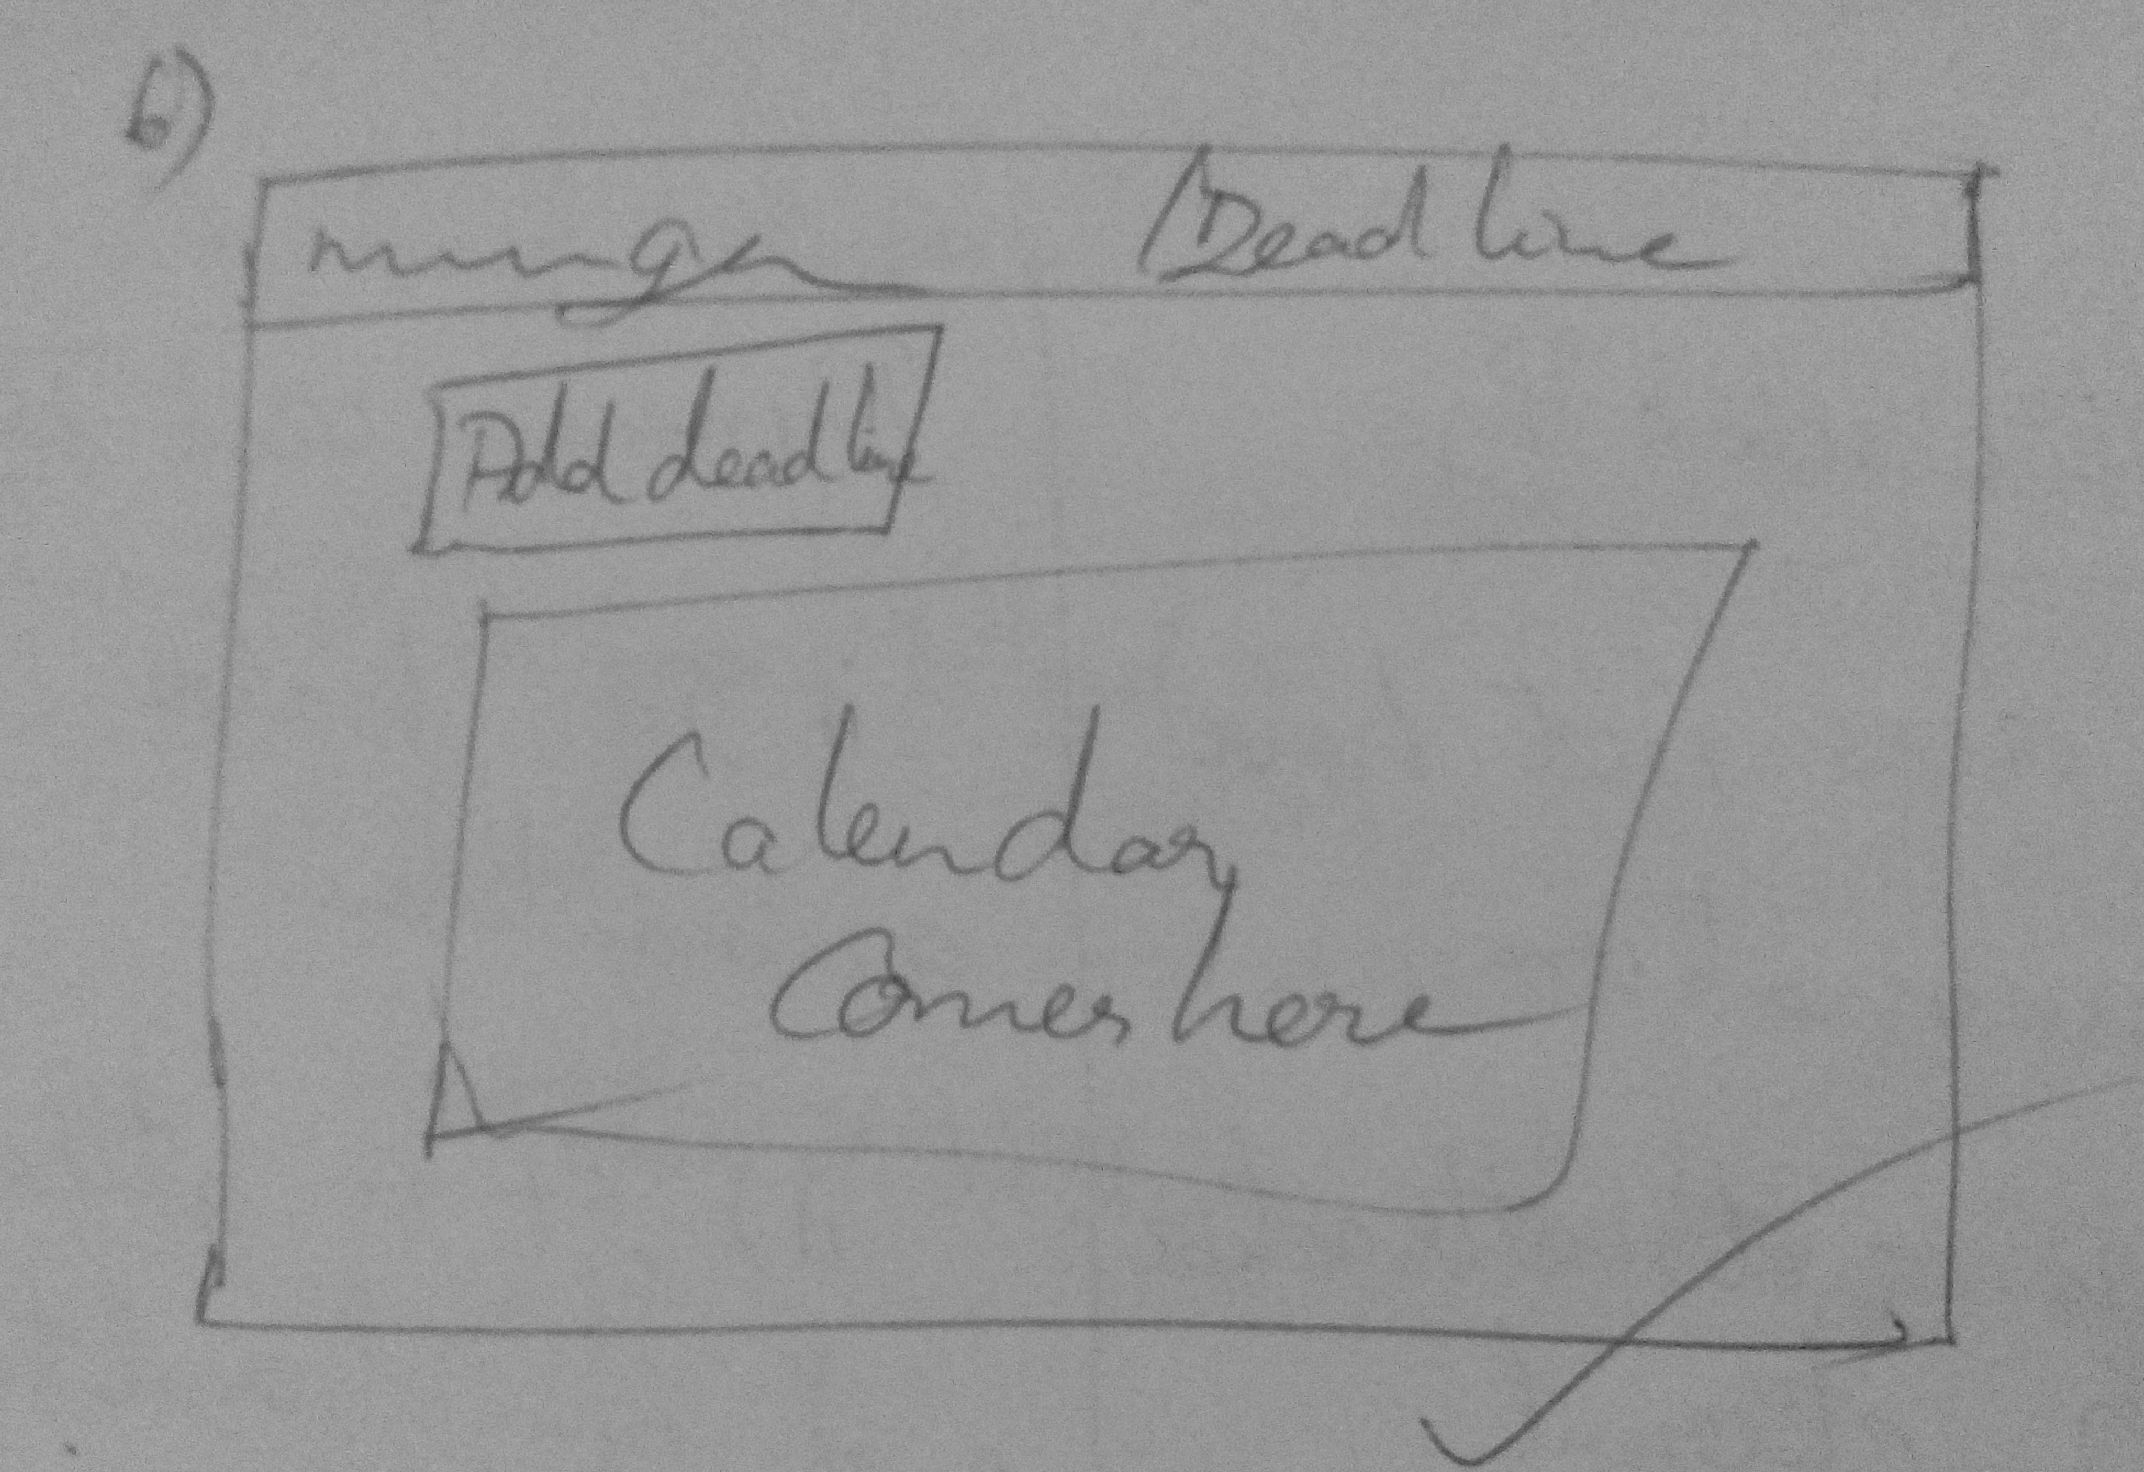 6)
Deadline
Add deadline
Calendar
Comes here